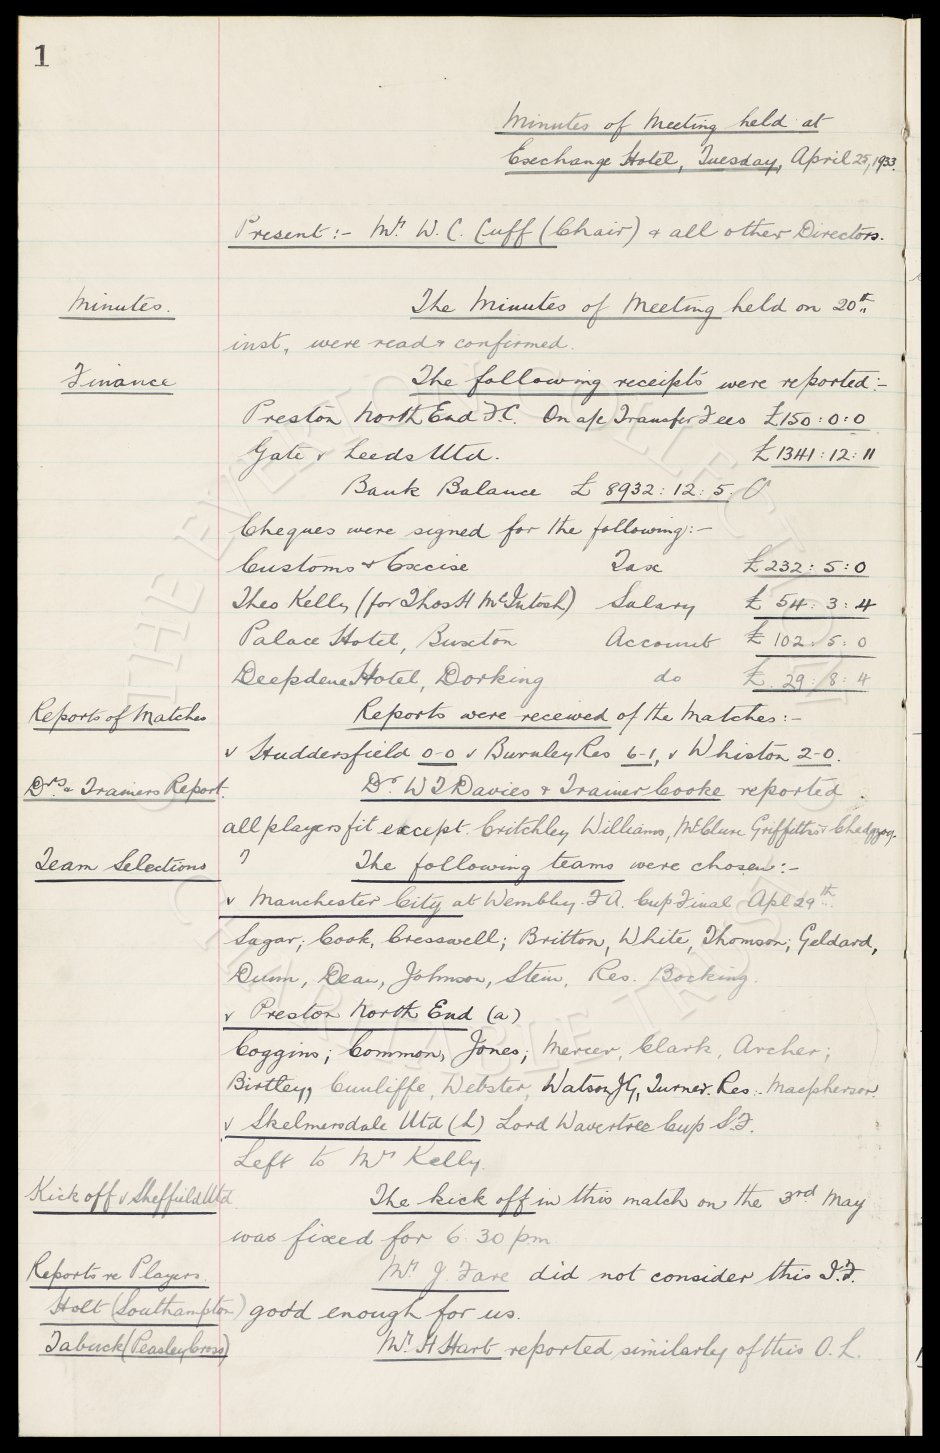 1
Minutes of Meeting held at
Exchange Hotel, Tuesday, April 25, 1933.
Present:- Mr. W. C. Cuff (Chair) & all other Directors.
Minutes. The Minutes of Meeting held on 20th
inst, were read & confirmed.
Finance The following receipts were reported:-
Preston North End F.C. On a/c Transfer Fees £150:0:0
Gate v Leeds Utd. £1341:12:11
Bank Balance £8932:12:5.
Cheques were signed for the following:-
Customs & Excise Tax £232:5:0
Theo Kelly (for Thos H McIntosh) Salary £54:3:4
Palace Hotel, Buxton Account £102:5:0
Deepdene Hotel, Dorking do £29:8:4
Reports of Matches Reports were received of the Matches:-
v Huddersfield 0-0 v Burnley Res 6-1, v Whiston 2-0.
Drs & Trainers Report. Dr W T Davies & Trainer Cooke reported
all players fit except Critchley Williams, McClure Griffiths & Chedgzoy.
Team Selections ? The following teams were chosen:-
v Manchester City at Wembley F.A. Cup Final Apl 29th
Sagar; Cook, Cresswell; Britton, White, Thomson; Geldard,
Dunn, Dean, Johnson, Stein, Res. Bocking.
v Preston North End (a)
Coggins; Common, Jones; Mercer, Clark, Archer;
Birtley, Cunliffe, Webster, Watson JG, Turner. Res. Macpherson.
v Skelmersdale Utd (h) Lord Wavertree Cup S.F.
Left to Mr Kelly.
Kick off v Sheffield Utd The kick off in this match on the 3rd May
was fixed for 6.30 pm
Reports re Players. Mr J. Fare did not consider this I.F.
Holt (Southampton) good enough for us.
Tabuck (Peasley Cross) Mr. H Hart reported similarly of this O.L.
THE EVERTON COLLECTION
CHARITABLE TRUST